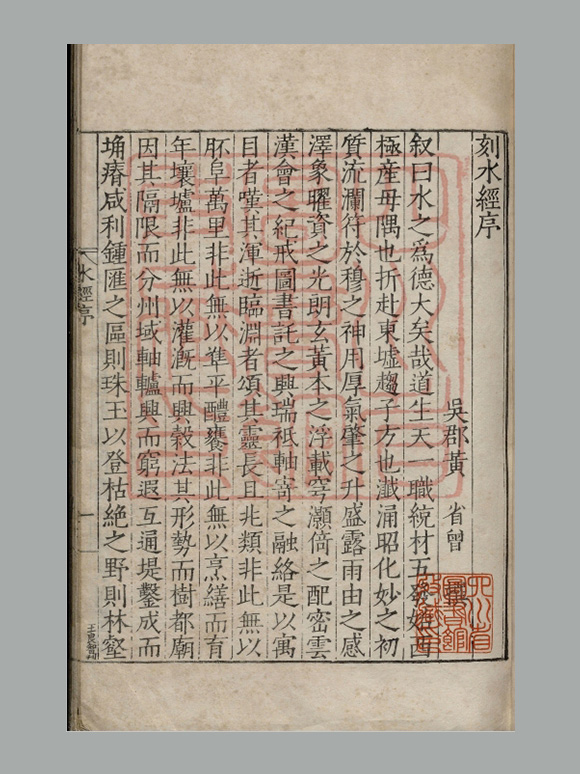 刻水經序
吳郡黃 省曾
叙曰水之為德大矣哉道生天一職統材五發始西
極産母隅也折赴東墟趨子方也瀸涌昭化妙之初
質流瀾符於穆之神用厚氣肇之升盛露雨由之感
澤象曜資之光朗玄黃本之浮載穹灝倚之配密雲
漢會之紀戒圖書託之興瑞祗軸寄之融絡是以寓
目者嘆其渾逝臨淵者頌其靈長且兆類非此無以
胚阜萬里非此無以準平醴饔非此無以烹繕而育
年壤壚非此無以灌漑而興穀法其形勢而樹都廟
因其隔限而分州域軸轤興而窮遐互通堤鑿成而
埆瘠咸利鍾匯之區則珠玉以登枯絶之野則林壑
水經序
一